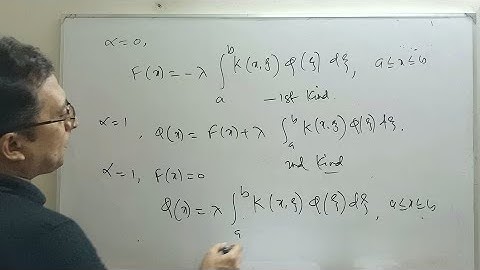 α = 0,
F(x) = - λ ∫_a^b K(x, ξ) φ(ξ) dξ, a ≤ x ≤ b
— 1st Kind.
α = 1, φ(x) = F(x) + λ ∫_a^b K(x, ξ) φ(ξ) dξ.
2nd Kind
α = 1, F(x) = 0
φ(x) = λ ∫_a^b K(x, ξ) φ(ξ) dξ, a ≤ x ≤ b